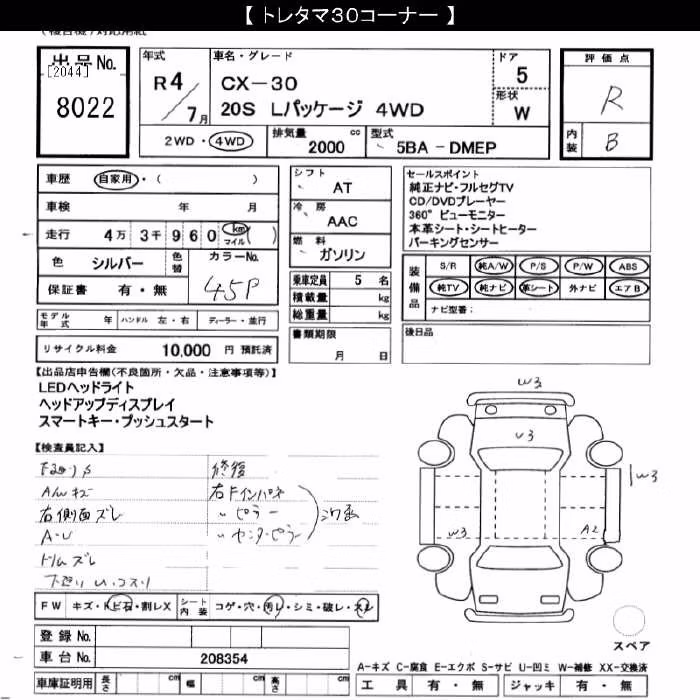 【 トレタマ30コーナー 】
出品No.
[2044]
8022
年式
R4/7月
車名・グレード
CX-30
20S Lパッケージ 4WD
ドア
5
形状
W
評価点
R
内装
B
2WD・4WD
排気量
2000 cc
型式
5BA-DMEP
車歴 自家用・( )
車検 年 月
走行 4万 3千 960 km マイル ( )
色 シルバー 色替 カラーNo. 45P
保証書 有・無
モデル年式 年 ハンドル 左・右 ディーラー・並行
リサイクル料金 10,000 円 預託済
シフト AT
冷房 AAC
燃料 ガソリン
乗車定員 5 名
積載量 kg
総重量 kg
書類期限
月 日
セールスポイント
純正ナビ・フルセグTV
CD/DVDプレーヤー
360°ビューモニター
本革シート・シートヒーター
パーキングセンサー
装備品
S/R 純A/W P/S P/W ABS
純TV 純ナビ 革シート 外ナビ エアB
ナビ型番:
後日品
【出品店申告欄(不良箇所・欠品・注意事項等)】
LEDヘッドライト
ヘッドアップディスプレイ
スマートキー・プッシュスタート
【検査員記入】
A/Wキズ
右側面ズレ
A・U
修復
右Fインパネ
〃 ピラー
〃 センターピラー
W3
U3
W3
W3
A2
FW キズ・トビ石・割レX
シート内装 コゲ・穴・汚レ・シミ・破レ・スレ
登録No.
車台No. 208354
車庫証明用 長さ cm 幅 cm 高さ cm
スペア
A-キズ C-腐食 E-エクボ S-サビ U-凹ミ W-補修 XX-交換済
工具 有・無 ジャッキ 有・無